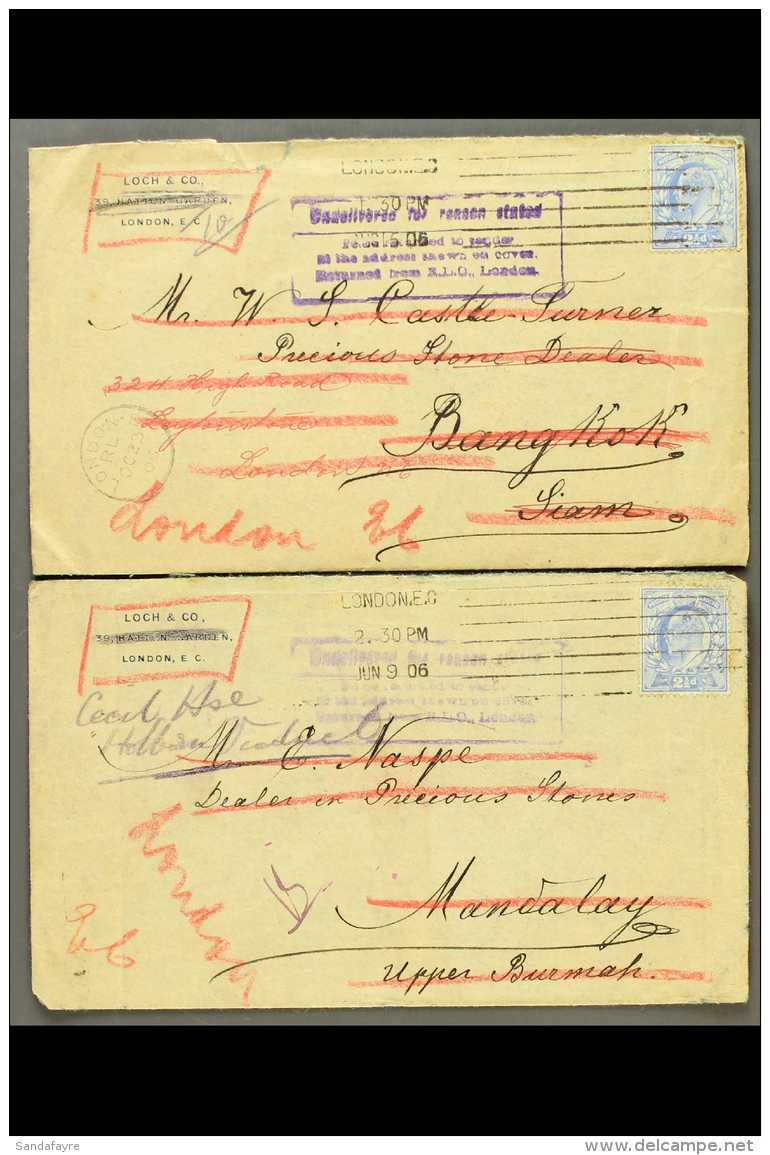 LOCH & CO.,
39, HATTON GARDEN,
LONDON, E.C.
10
LONDON.E.C
1.30 PM
06
Undelivered for reason stated
To be returned to sender
at the address shewn on cover.
Returned from R.L.O., London.
2½d
Mr. W. S. Castle-Turner
Precious Stone Dealer
324 High Road
Leytonstone
London
Bangkok
Siam
LONDON
OC 23
London EC
LOCH & CO.,
39, HATTON GARDEN,
LONDON, E.C.
LONDON.E.C
2.30 PM
JUN 9 06
Undelivered for reason stated
Returned from R.L.O., London.
2½d
Cecil Hse
Holborn Viaduct
Mr. E. Naspe
Dealer in Precious Stones
London
EC
Mandalay
Upper Burmah.
Sandafayre
delcampe.net